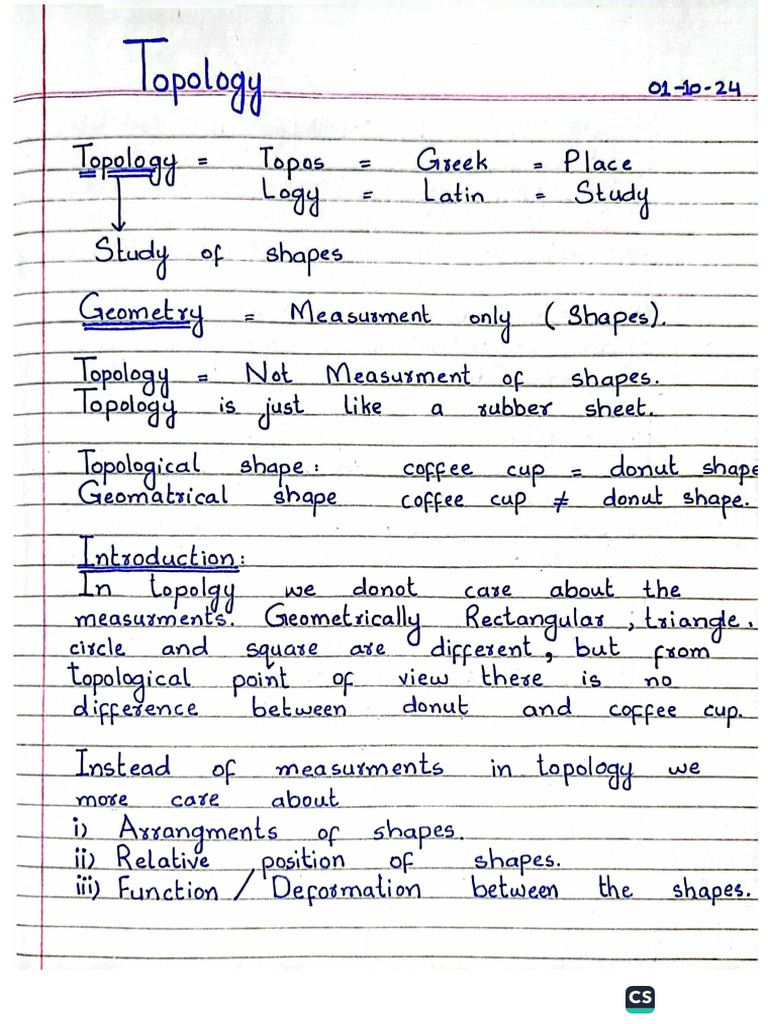 Topology
01-10-24
Topology = Topos = Greek = Place
Logy = Latin = Study
Study of shapes
Geometry = Measurment only (Shapes).
Topology = Not Measurment of shapes.
Topology is just like a rubber sheet.
Topological shape: coffee cup = donut shape
Geomatrical shape coffee cup ≠ donut shape.
Introduction:
In topolgy we donot care about the
measurments. Geometrically Rectangular, triangle,
circle and square are different, but from
topological point of view there is no
difference between donut and coffee cup.
Instead of measurments in topology we
more care about
i) Arrangments of shapes.
ii) Relative position of shapes.
iii) Function / Deformation between the shapes.
CS